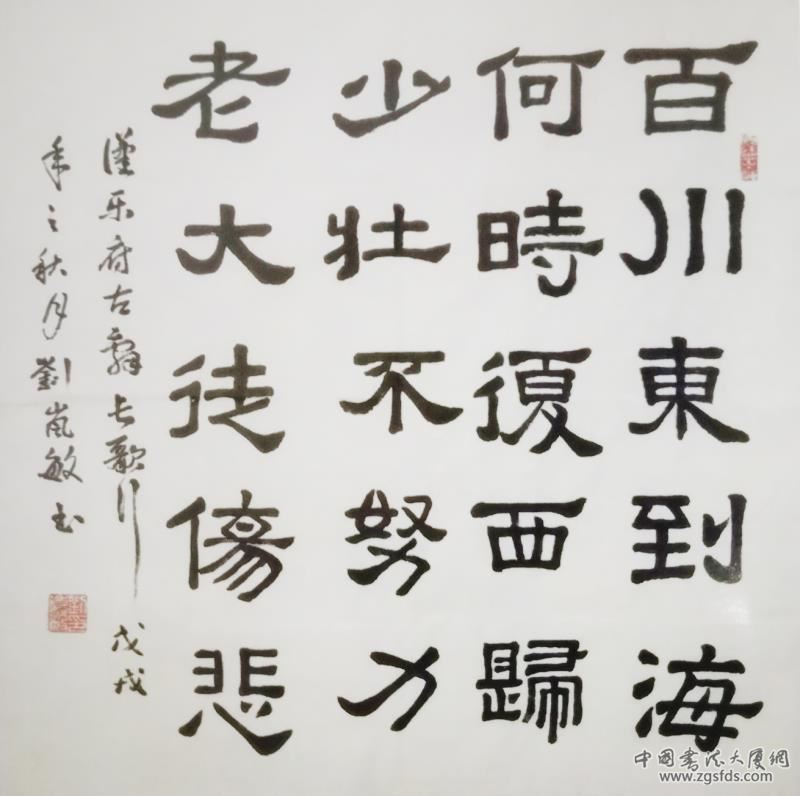 百川東到海
何時復西歸
少壮不努力
老大徒傷悲
漢乐府古辭长歌行 戊戌
年之秋月劉嵐敏书
中国書法大厦網
www.zgsfds.com